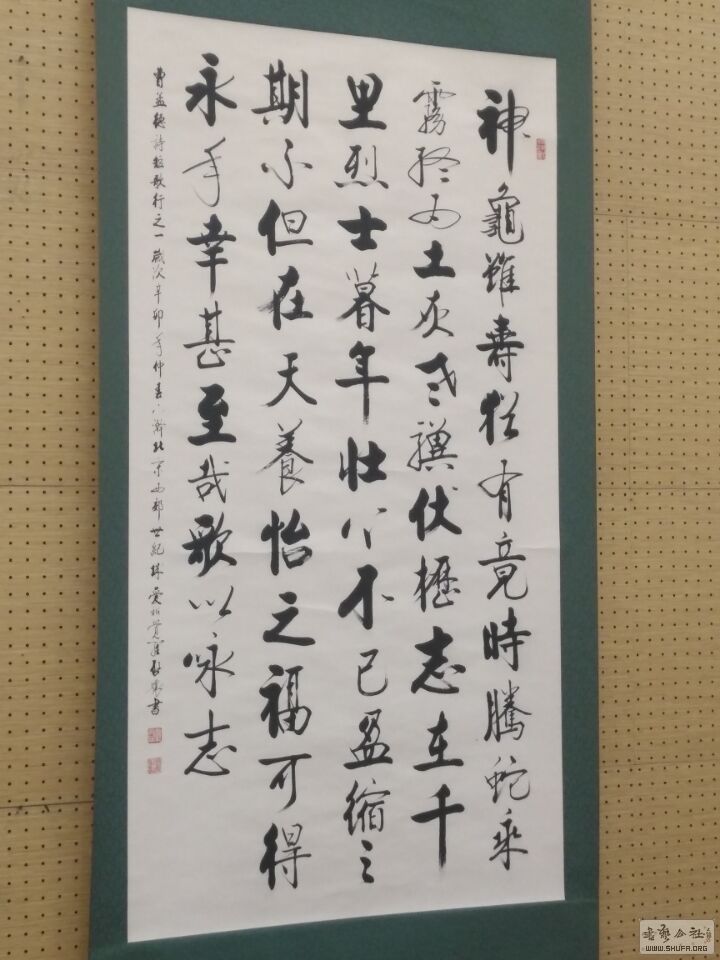 神龜雖壽猶有竟時騰蛇乘
霧終為土灰老驥伏櫪志在千
里烈士暮年壯心不已盈縮之
期不但在天養怡之福可得
永年幸甚至哉歌以咏志
曹孟德詩短歌行之一歲次辛卯年仲春北京西郊世紀城愛新覺羅書
书艺公社
WWW.SHUFA.ORG